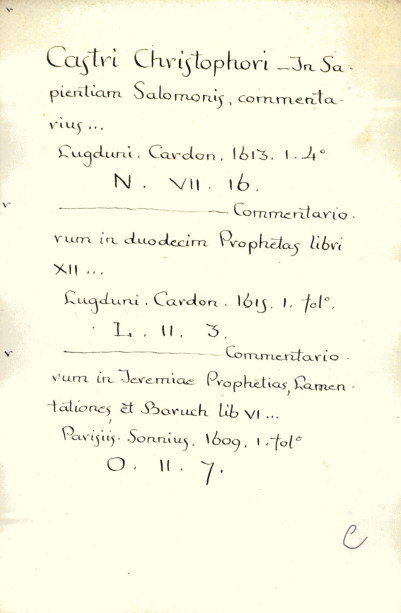 v
Castri Christophori _ In Sa-
pientiam Salomonis, commenta-
rius ...
Lugduni. Cardon. 1613. 1. 4°
N. VII. 16.
v
———— Commentario.
rum in duodecim Prophetas libri
XII ...
Lugduni. Cardon. 1615. 1. fol°.
L. II. 3.
v
———— Commentario-
rum in Jeremiae Prophetias, Lamen-
tationes, et Baruch lib VI ...
Parisiis. Sonnius. 1609. 1. fol°
O. II. 7.
C